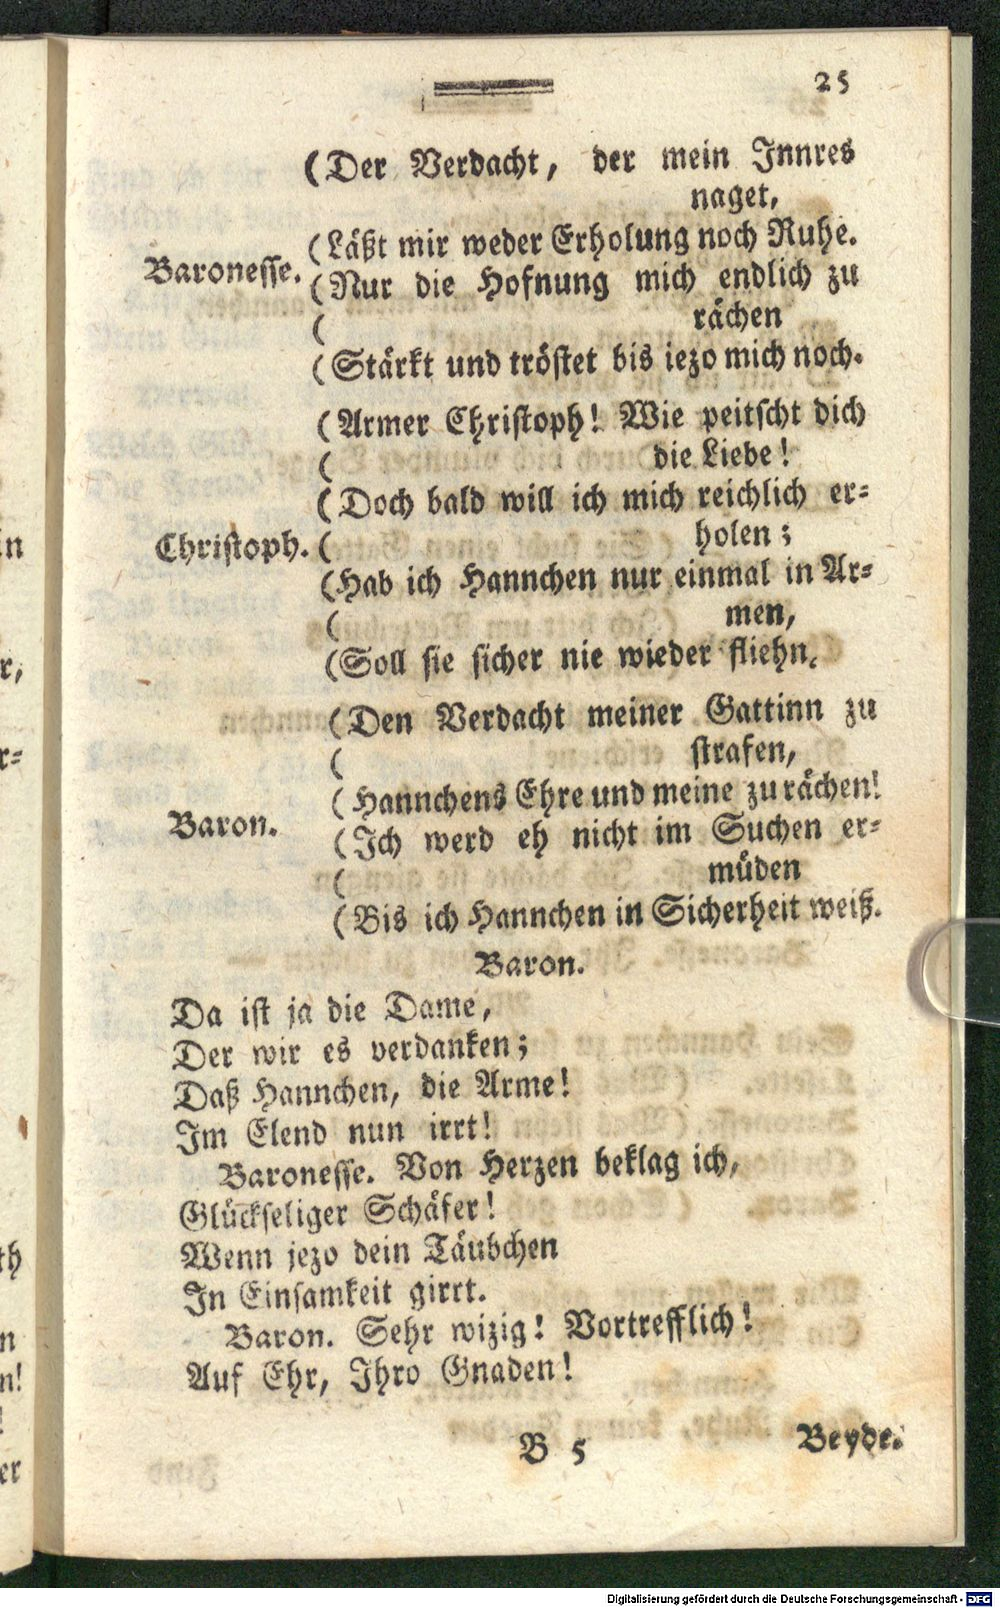 25
(Der Verdacht, der mein Innres
naget,
(Läßt mir weder Erholung noch Ruhe.
Baronesse. (Nur die Hofnung mich endlich zu
( rächen
(Stärkt und tröstet bis iezo mich noch.
(Armer Christoph! Wie peitscht dich
( die Liebe!
(Doch bald will ich mich reichlich er=
Christoph. ( holen;
(Hab ich Hannchen nur einmal in Ar=
( men,
(Soll sie sicher nie wieder fliehn.
(Den Verdacht meiner Gattinn zu
( strafen,
(Hannchens Ehre und meine zu rächen!
Baron. (Ich werd eh nicht im Suchen er=
( müden
(Bis ich Hannchen in Sicherheit weiß.
Baron.
Da ist ja die Dame,
Der wir es verdanken;
Daß Hannchen, die Arme!
Im Elend nun irrt!
Baronesse. Von Herzen beklag ich,
Glückseliger Schäfer!
Wenn jezo dein Täubchen
In Einsamkeit girrt.
Baron. Sehr wizig! Vortrefflich!
Auf Ehr, Ihro Gnaden!
B 5 Beyde.
Digitalisierung gefördert durch die Deutsche Forschungsgemeinschaft - DFG